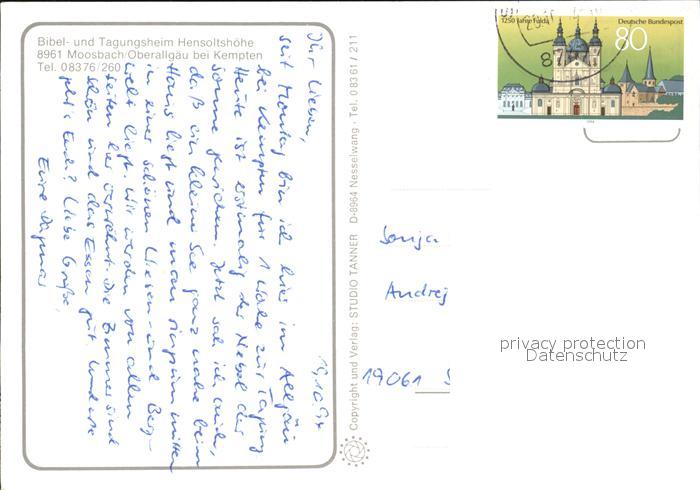 Bibel- und Tagungsheim Hensoltshöhe
8961 Moosbach/Oberallgäu bei Kempten
Tel. 08376/260
19.10.94
Ihr Lieben,
seit Montag bin ich hier im Allgäu
bei Kempten für 1 Woche zur Tagung
Heute ist erstmalig der Nebel der
Sonne gewichen. Jetzt sah ich auch,
daß ein kleiner See ganz nahe beim
Haus liegt und man ringsum mitten
in einer schönen Wiesen- und Berg-
welt liegt. Wir werden von allen
Seiten her verwöhnt. Die Zimmer sind
schön und das Essen gut. Und wie
geht's Euch? Liebe Grüße,
Eure Dagmar
Copyright und Verlag: STUDIO TANNER D-8964 Nesselwang · Tel. 08361/211
1250 Jahre Fulda
Deutsche Bundespost
80
Sonja
Andrej
19061 S
privacy protection
Datenschutz